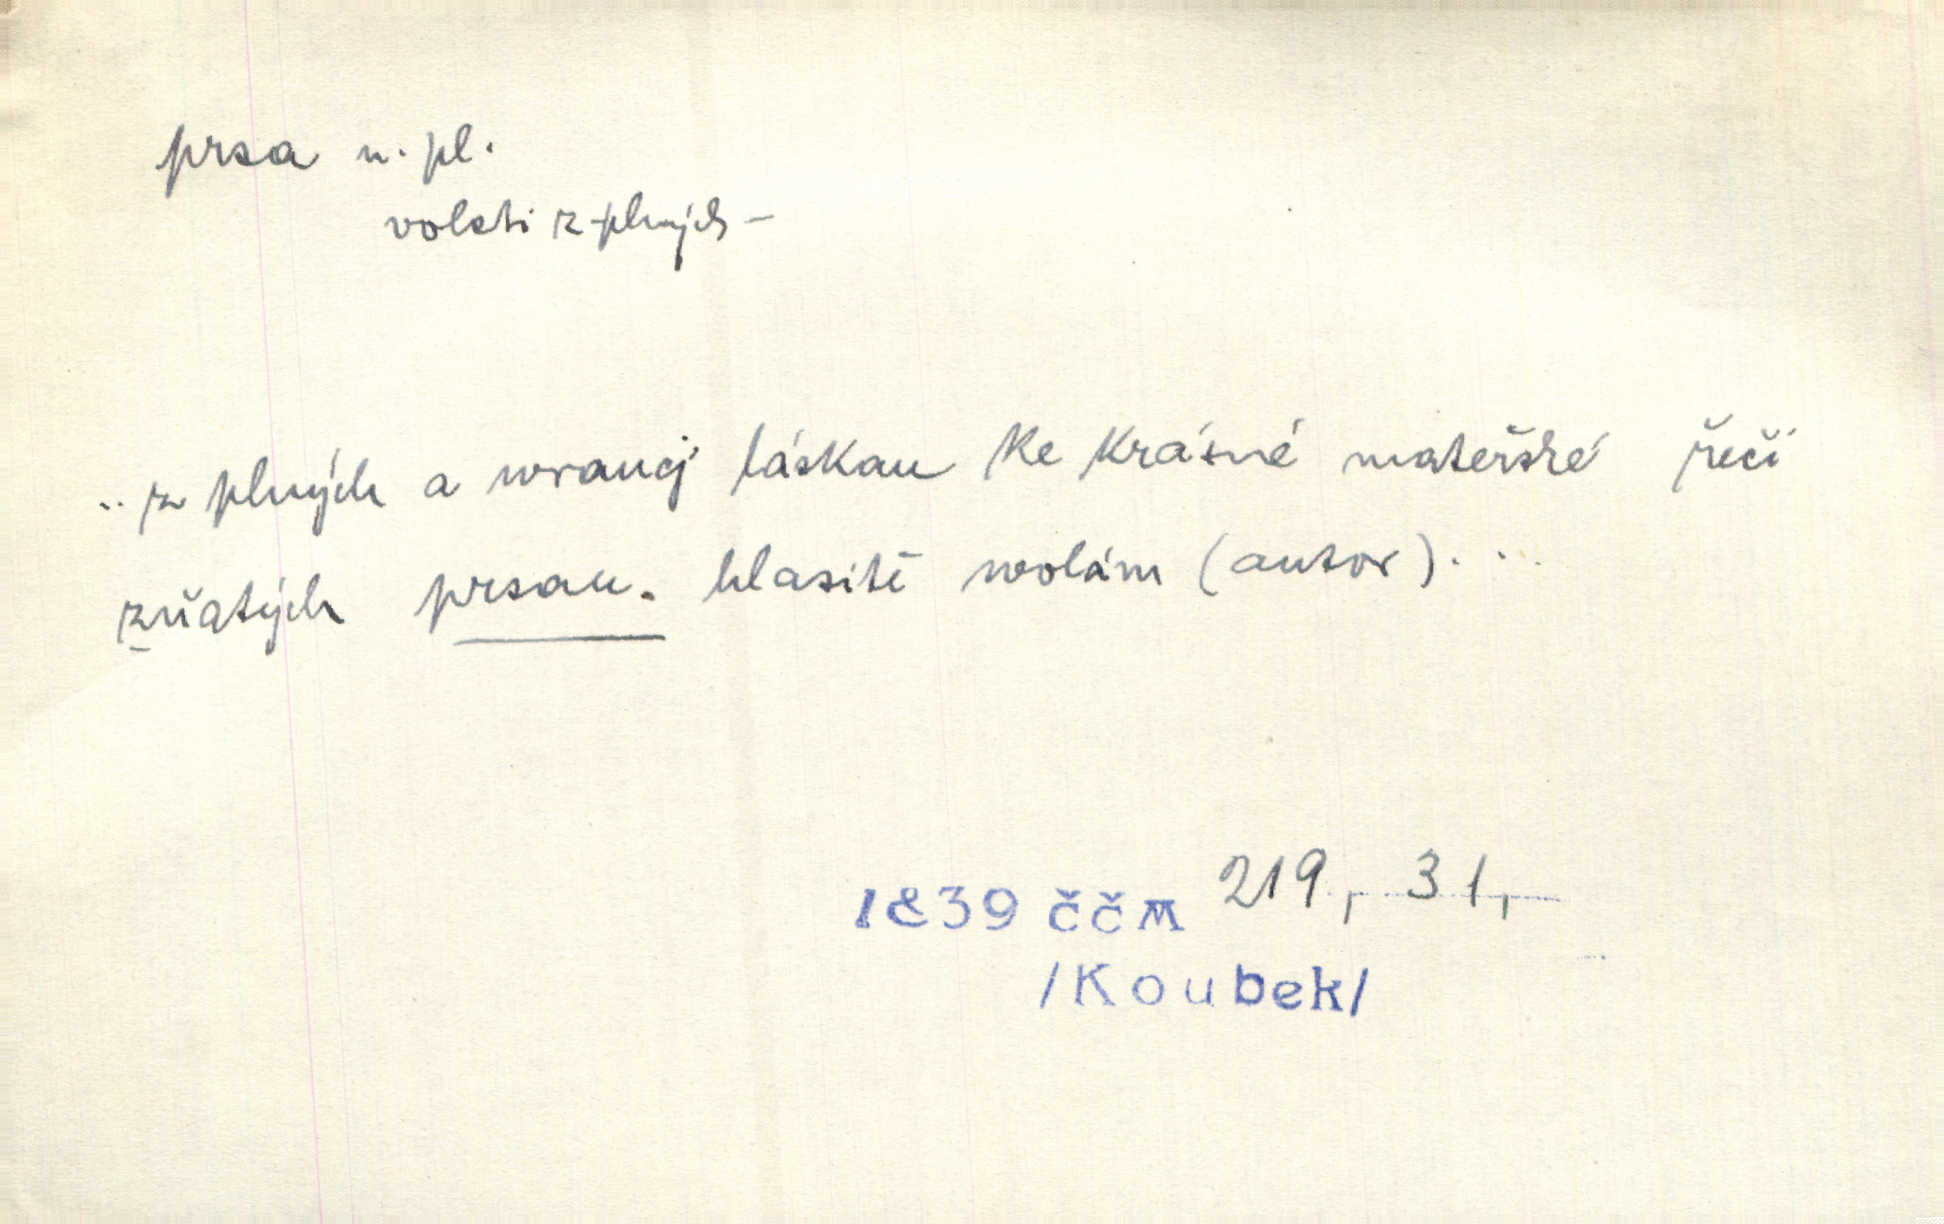 prsa n. pl.
volati z plných –
.. z plných a wraucj láskau ke krásné mateřské řeči
zňatých prsau. hlasitě wolám (autor)...
1839 ččm 219, 31,
/Koubek/